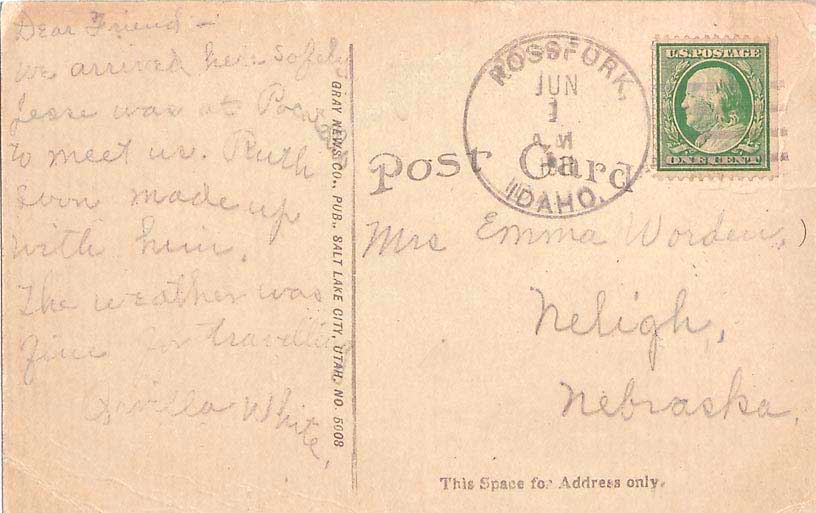 Dear Friend –
we arrived here safely
Jesse was at
to meet us. Ruth
soon made up
with him.
The weather was
fine for travelling
White.
GRAY NEWS CO., PUB., SALT LAKE CITY, UTAH, NO. 5008
ROSSFORK,
JUN
1
A.M
IDAHO.
U.S. POSTAGE
ONE CENT
Post Card
Mrs Emma Worden,
Neligh,
Nebraska.
This Space for Address only.